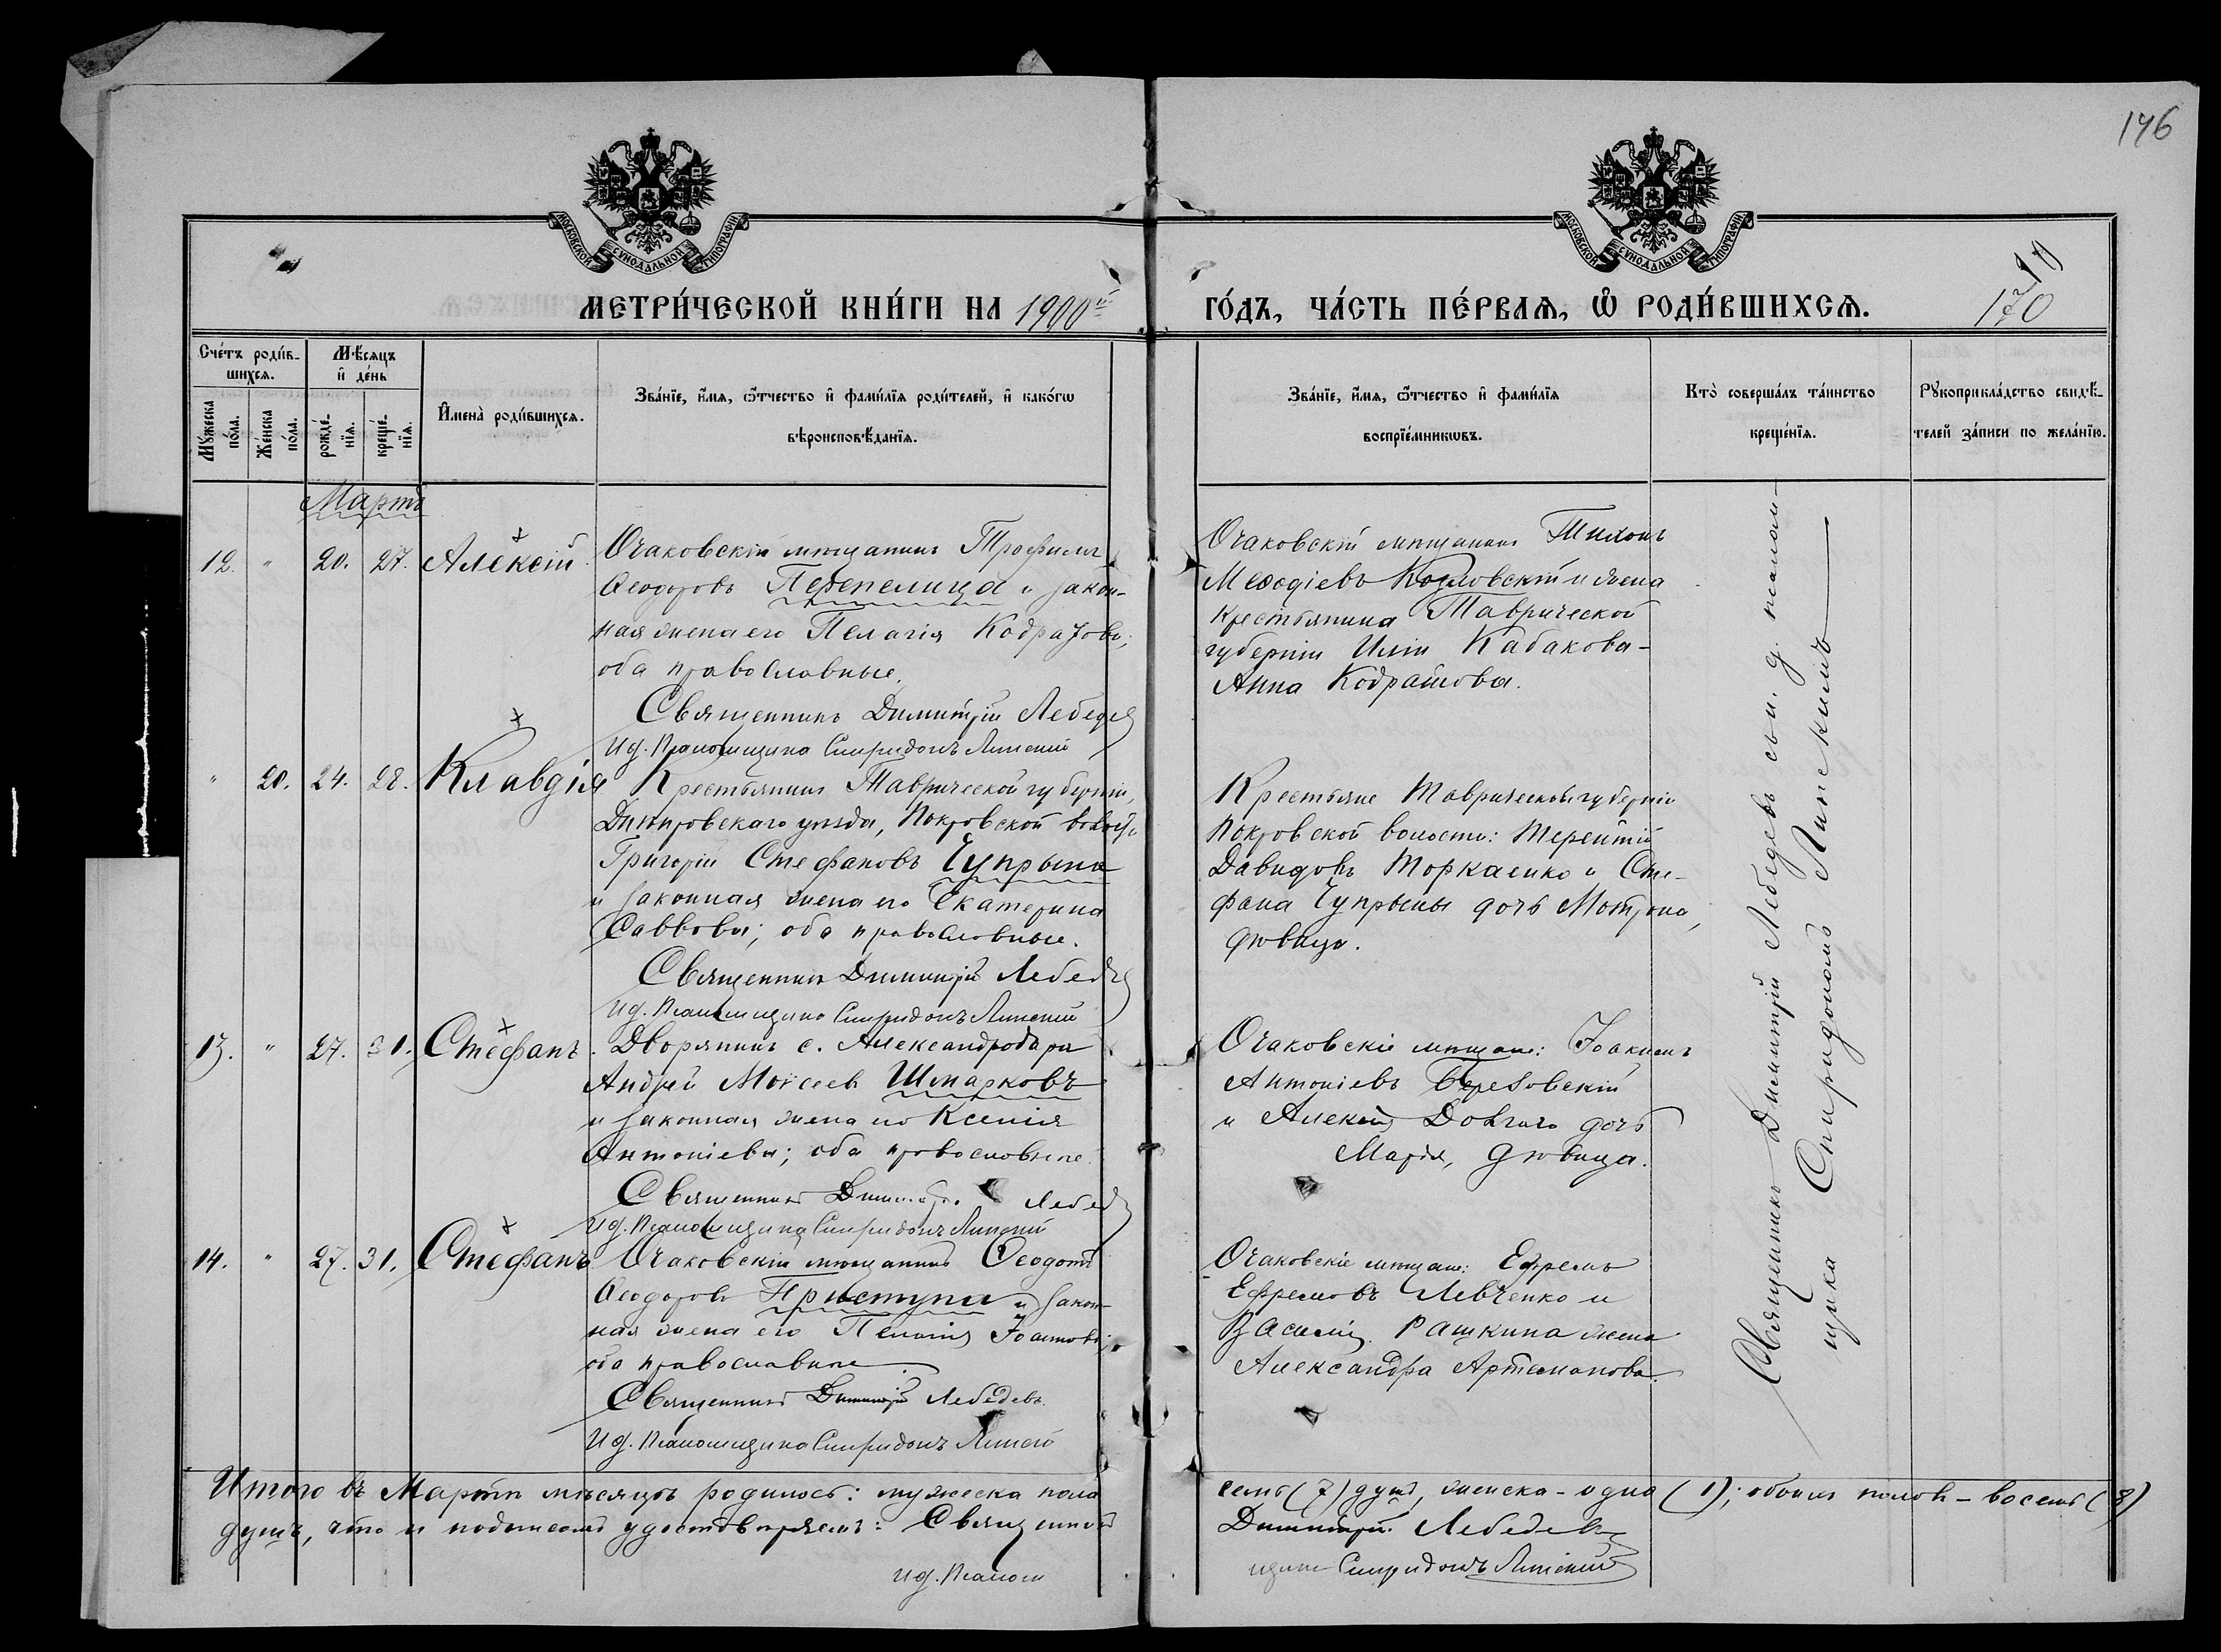 176
МОСКОВСКОЙ СѴНОДАЛЬНОЙ ТИПОГРАФІИ
МОСКОВСКОЙ СѴНОДАЛЬНОЙ ТИПОГРАФІИ
МЕТРИ́ЧЕСКОЙ КНИ́ГИ НА 1900й
ГО́ДЪ, ЧА́СТЬ ПЕ́РВАЯ, Ѡ РОДИ́ВШИХСЯ.
170
Сче́тъ роди́в-
шихся.
Мѣ́сяцъ
и҆ де́нь
Мꙋ́жеска
по́ла.
Же́нска
по́ла.
рожде́-
нїя.
креще́-
нїя.
И҆мена̀ роди́вшихся.
Зва́нїе, и҆́мя, ѻ҆́тчество и҆ фами́лїя роди́телей, и҆ како́гѡ
вѣроисповѣ́данїя.
Зва́нїе, и҆́мя, ѻ҆́тчество и҆ фами́лїя
воспрїе́мникѡвъ.
Кто̀ соверша́лъ та́инство
креще́нїя.
Рꙋкоприкла́дство свидѣ́-
телей за́писи по жела́нїю.
Мартъ
12. " 20. 27. Алексій
Очаковскій мѣщанинъ Трофимъ
Ѳеодоровъ Перепелица и закон-
ная жена его Пелагія Кодратова;
оба православные.
Священникъ Димитрій Лебедев
Ид. Псаломщика Спиридонъ Липскій
Очаковскій мѣщанинъ Тихонъ
Меѳодіевъ Козловскій и жена
крестьянина Таврической
губерніи Иліи Кабакова-
Анна Кодратова.
" 20. 24. 28. Клавдія
Крестьянинъ Таврической губерніи,
Днѣпровскаго уѣзда, Покровской волости
Григорій Стефановъ Чупрына
и законная жена его Екатерина
Саввова; оба православные.
Священникъ Димитрій Лебедев
Ид. Псаломщика Спиридонъ Липскій
Крестьяне Таврической губерніи
Покровской волости: Терентій
Давидовъ Торкаенко и Сте-
фана Чупрыны дочь Мотрона,
дѣвица.
13. " 27. 31. Стефанъ.
Дворянинъ с. Александродара
Андрей Моисеев Шмарковъ
и законная жена его Ксенія
Антоніева; оба православные.
Священникъ Димитрій Лебедев
Ид. Псаломщика Спиридонъ Липскій
Очаковскіе мѣщане: Іоакимъ
Антоніевъ Березовскій
и Алексія Довгаго дочь
Марія, дѣвица.
14. " 27. 31. Стефанъ
Очаковскій мѣщанинъ Ѳеодотъ
Ѳеодоровъ Приступа и закон-
ная жена его Пелагія Іоаннова;
оба православные.
Священникъ Димитрій Лебедевъ.
Ид. Псаломщика Спиридонъ Липскій
Очаковскіе мѣщане: Ефремъ
Ефремовъ Левченко и
Василія Рашкина жена
Александра Артамонова.
Священникъ Димитрій Лебедевъ съ и. д. псалом-
щика Спиридономъ Липскимъ
Итого въ Мартѣ мѣсяцѣ родилось: мужеска пола
семь (7) душъ, женска - одна (1); обоихъ половъ - восемь (8)
душъ, что и подписомъ удостовѣряемъ: Священникъ
Димитрій Лебедевъ
Ид. Псалом
щика Спиридонъ Липскій